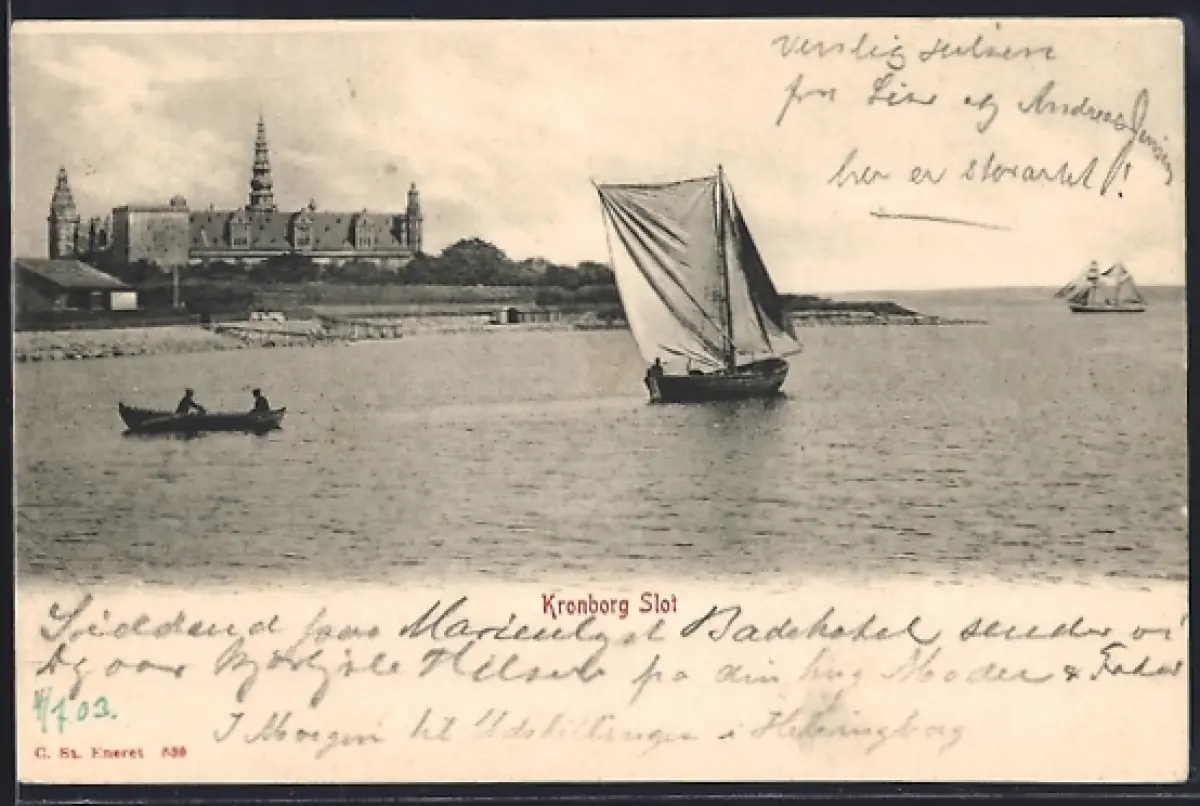 Venslig Hilsen
fra Lise og Andreas Jensen
her er storartet!
Kronborg Slot
Siddend paa Marienlyst Badehotel sender vi
Dig vor Hjertligste Hilsen fra din Moder & Fader
7 03.
I Morgen til Udstillingen i Helsingborg
C. St. Eneret 539